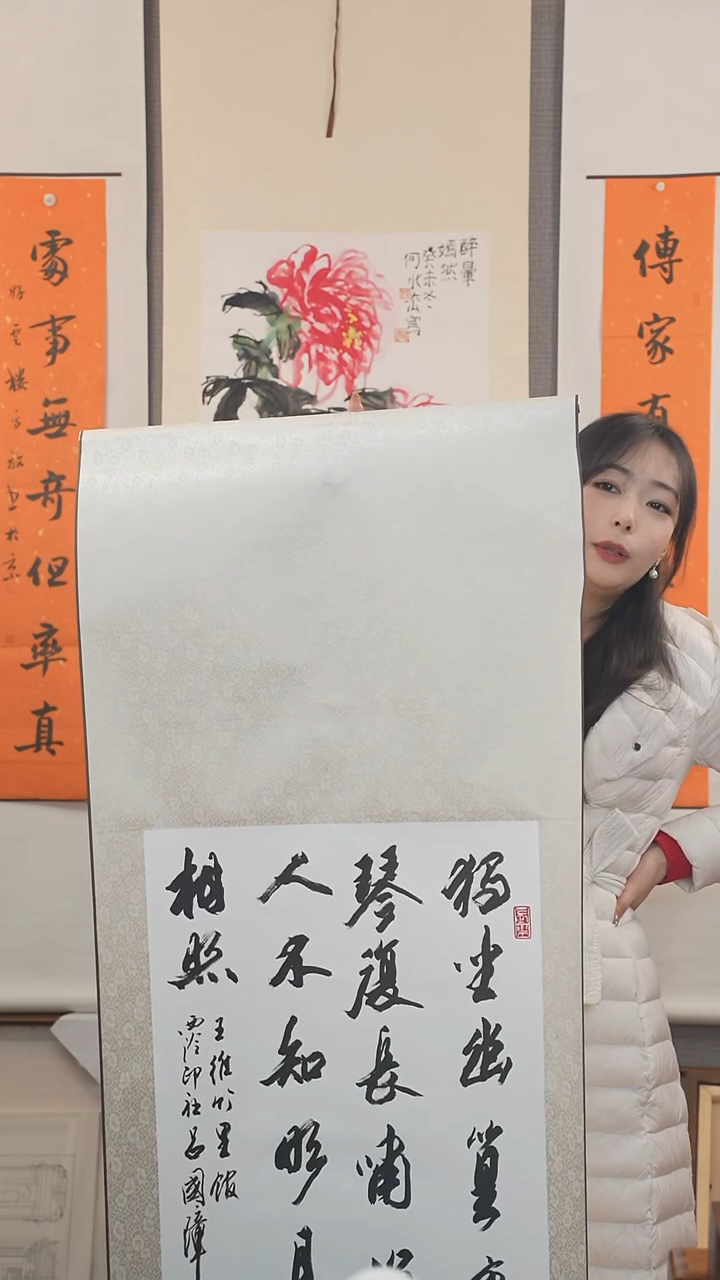 傳家有
處事無奇但率真
醉暈
嫣然
癸未冬
何水法寫
獨坐幽篁
琴復長嘯
人不知明月
相照
王維竹里館
西泠印社呂國璋